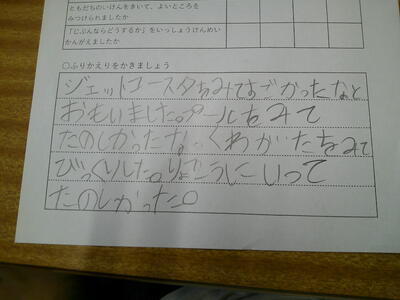 ともだちのいけんをきいて、よいところを
みつけられましたか
「じぶんならどうするか」をいっしょうけんめい
かんがえましたか
○ふりかえりをかきましょう
ジェットコースタちみてすごかったなと
おもいました。プールをみて
たのしかったな。くわがたをみて
びっくりした。りょこうにいって
たのしかった。